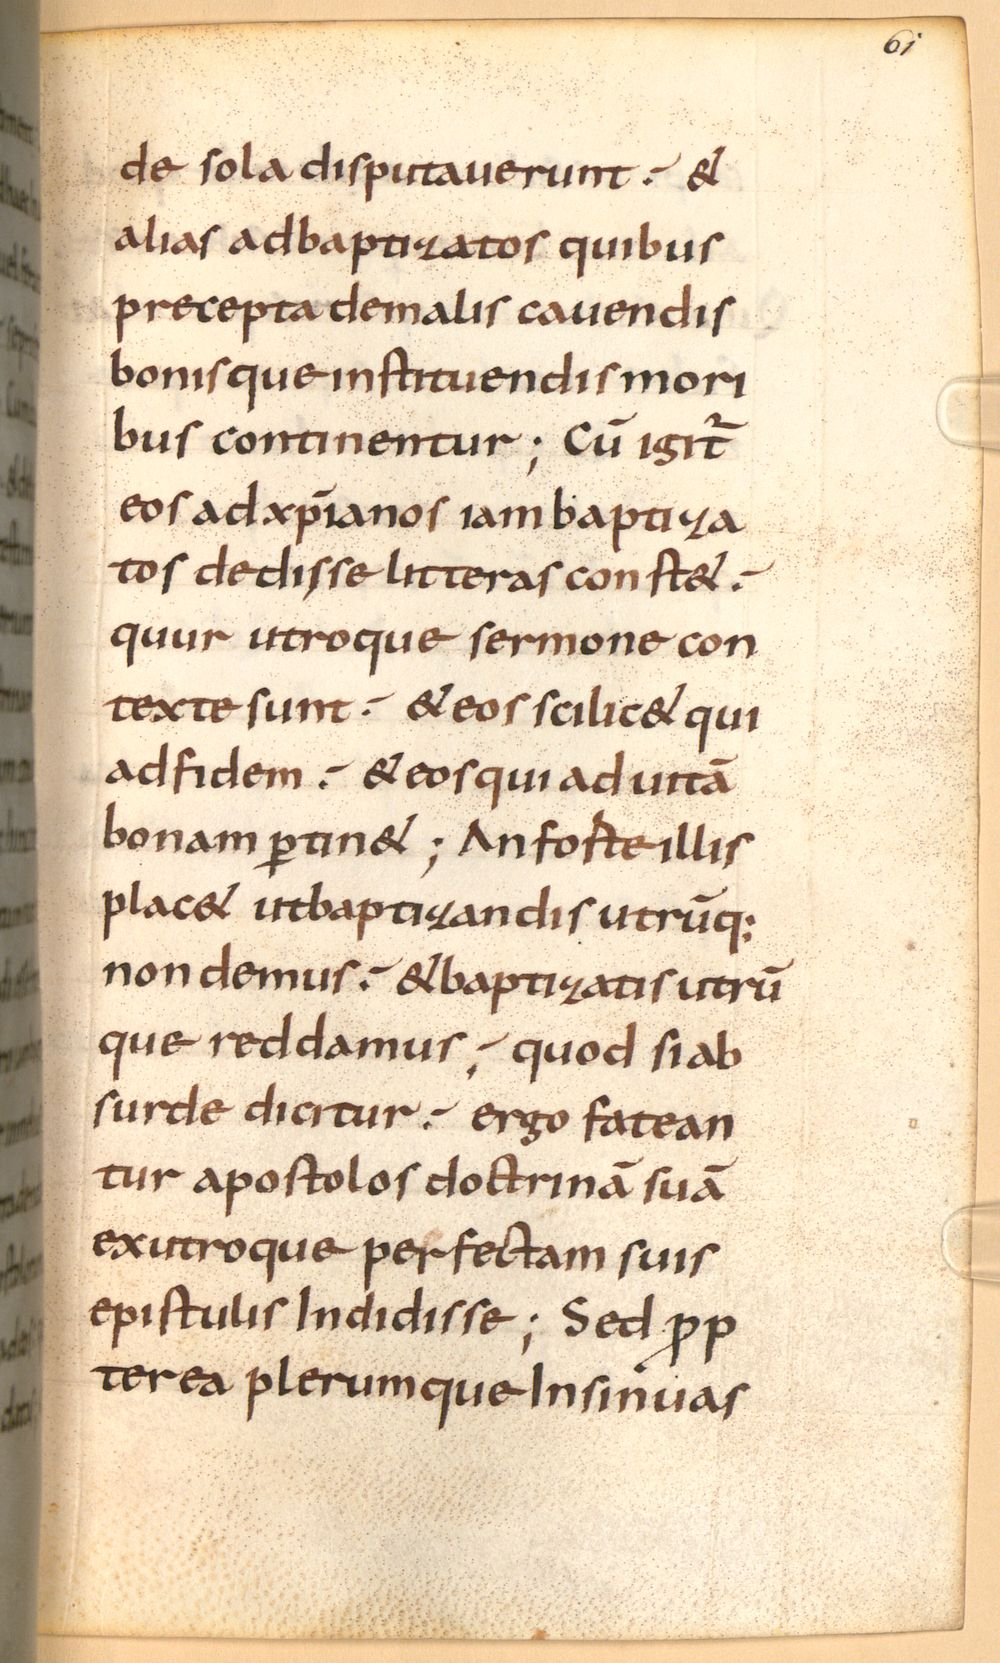 61
de sola disputauerunt :- &
alias adbaptizatos quibus
precepta demalis cauendis
bonisque instituendis mori
bus continentur ; Cū igit̄r
eos ad xp̄ianos iam baptiza
tos dedisse litteras const& :-
quur utroque sermone con
texte sunt :- & eos scilic& qui
adfidem :- & eos qui ad uitā
bonam ꝑtin& ; An foste illis
plac& utbaptizandis utrūq;
non demus :- & baptizatis utrū
que reddamus ;- quod si ab
surde dicitur :- ergo fatean
tur apostolos doctrinā suā
exutroque perfectam suis
epistulis Indidisse ; Sed ꝓp
terea plerumque Insinuas